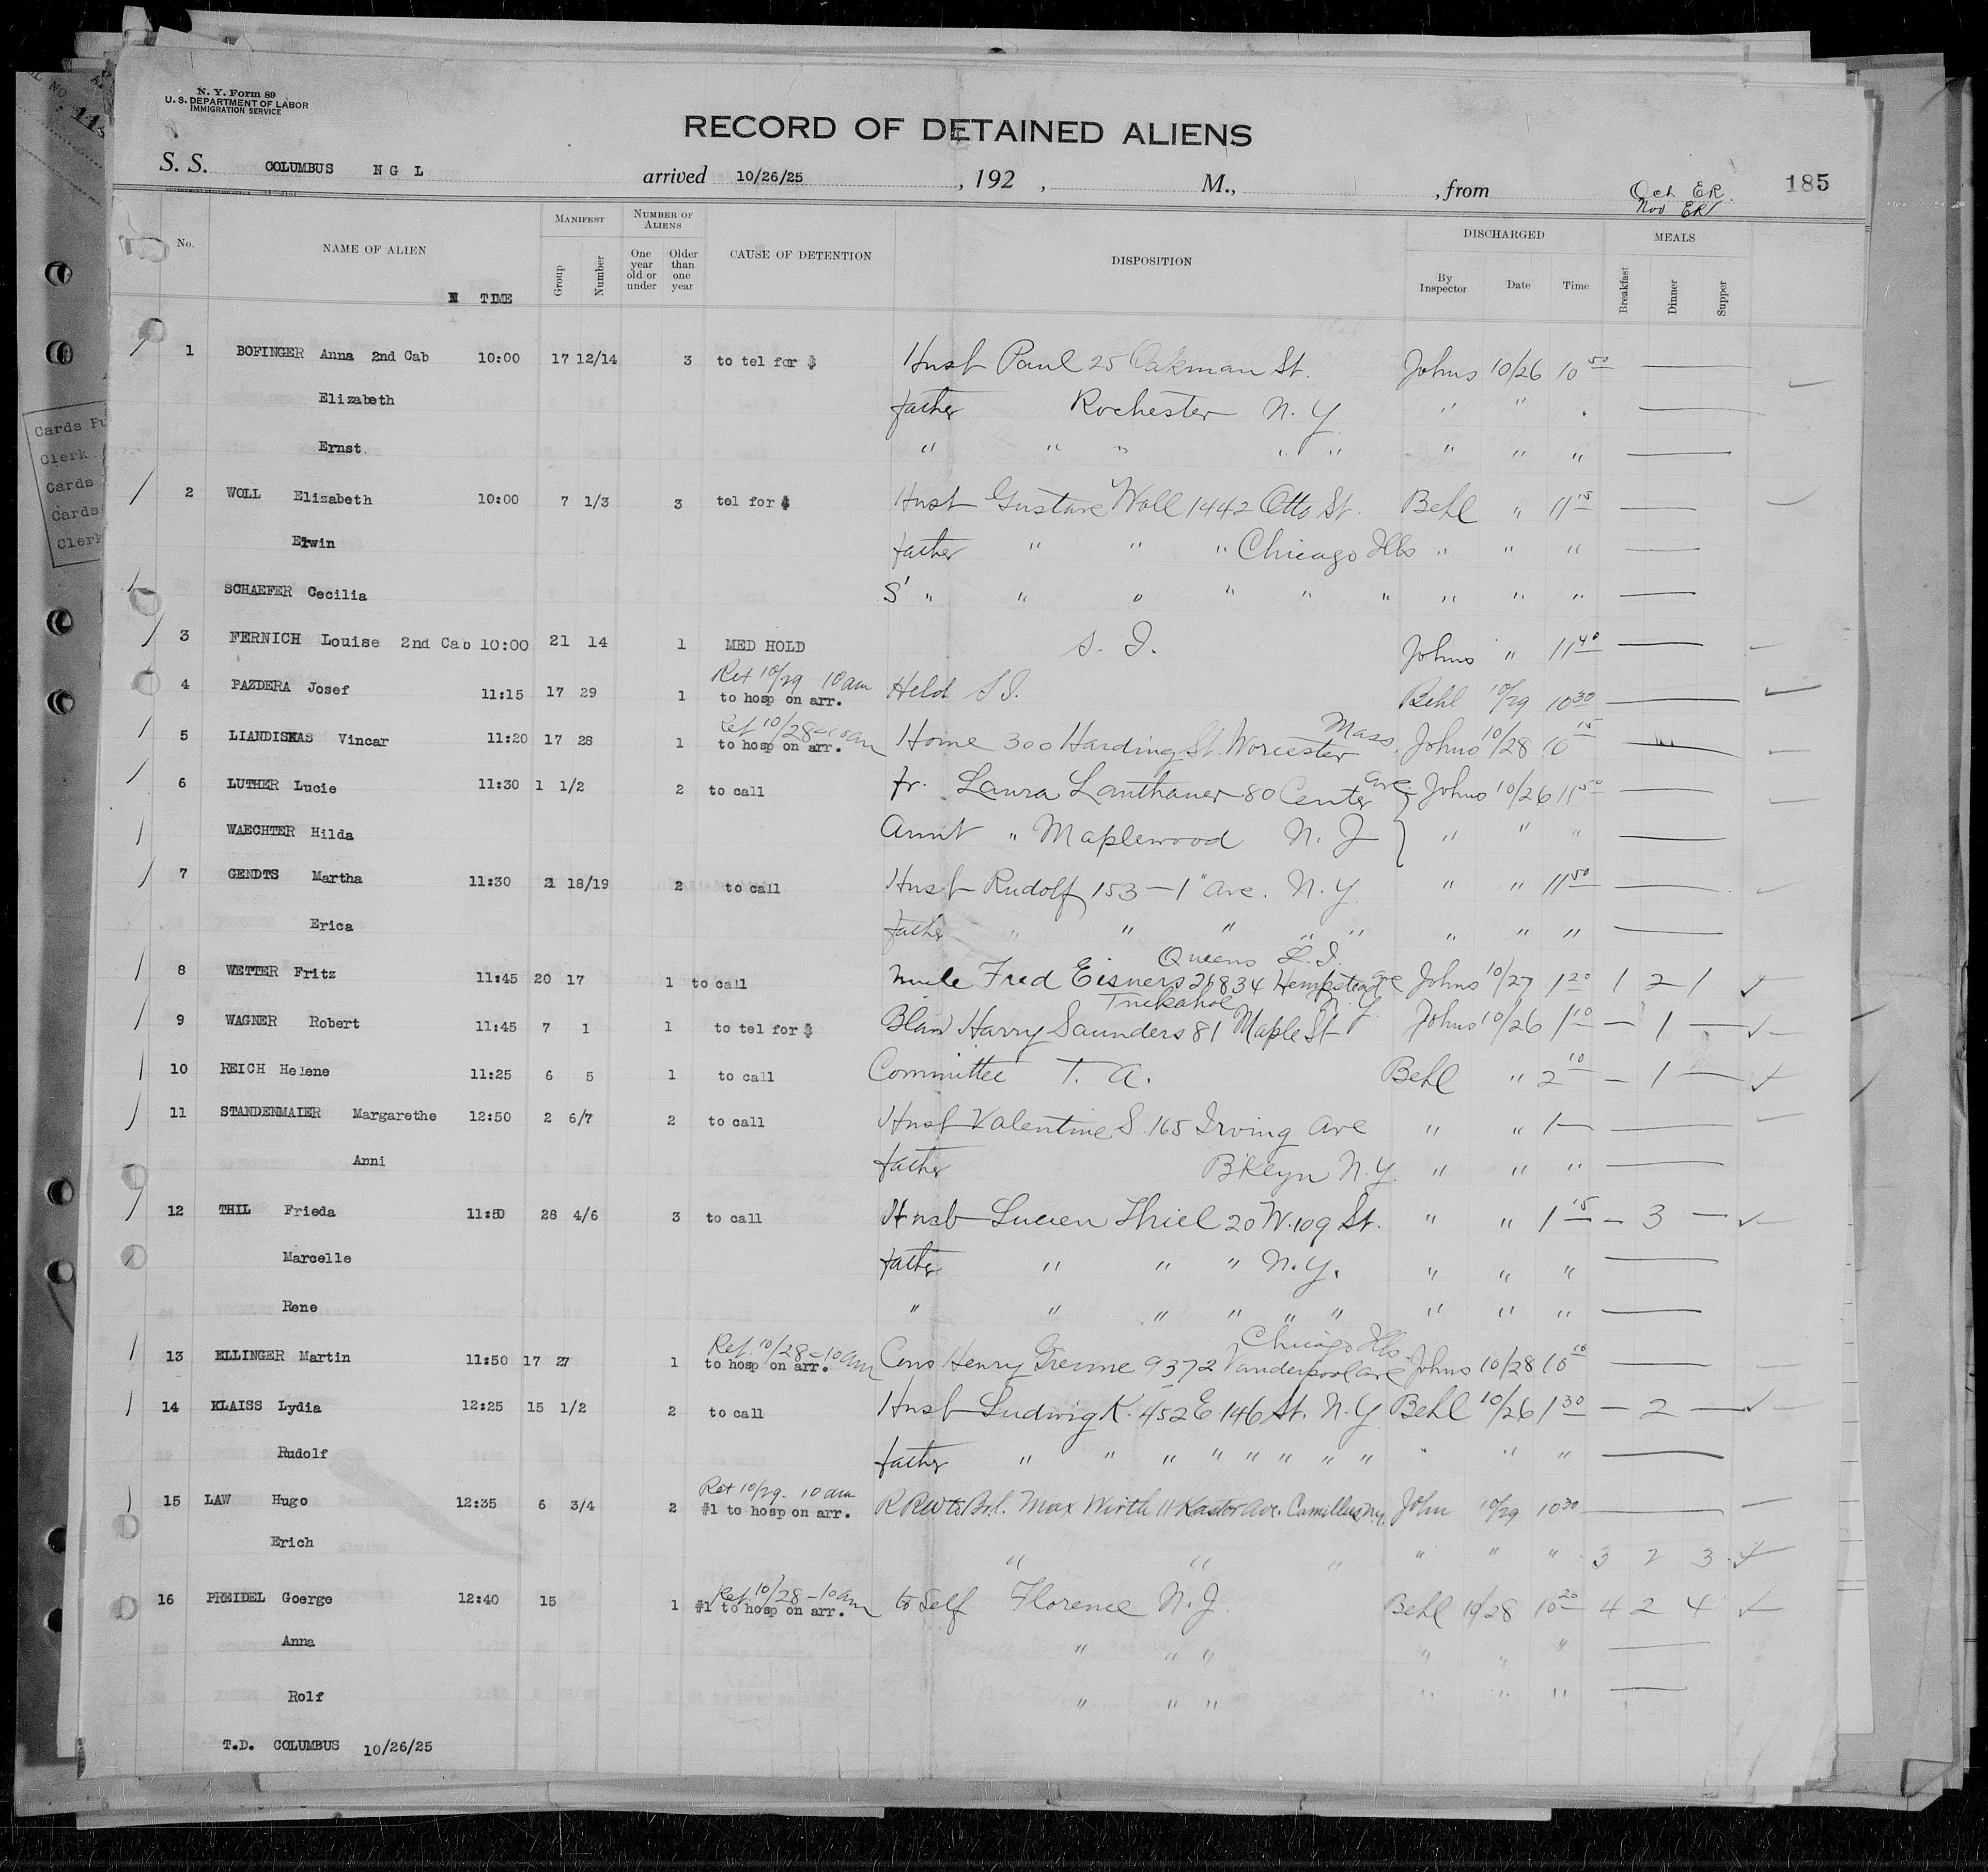 N. Y. Form 89
U. S. DEPARTMENT OF LABOR
IMMIGRATION SERVICE
RECORD OF DETAINED ALIENS
S. S. COLUMBUS N G L arrived 10/26/25 , 192 , M., , from Oct ER. 185
Nov ER
No. NAME OF ALIEN MANIFEST NUMBER OF ALIENS CAUSE OF DETENTION DISPOSITION DISCHARGED MEALS
TIME Group Number One year old or under Older than one year By Inspector Date Time Breakfast Dinner Supper
1 BOFINGER Anna 2nd Cab 10:00 17 12/14 3 to tel for $ Husb Paul 25 Oakman St. Johns 10/26 10 50
Elizabeth father Rochester N. Y " "
Ernst " " " " " " " "
2 WOLL Elizabeth 10:00 7 1/3 3 tel for $ Husb Gustave Woll 1442 Otto St. Behl " 11 15
Erwin father " " " Chicago Ills " " "
SCHAEFER Cecilia S' " " " " " " " " "
3 FERNICH Louise 2nd Cab 10:00 21 14 1 MED HOLD S. I. Johns " 11 40
Ret 10/29 10 am
4 PAZDERA Josef 11:15 17 29 1 to hosp on arr. Held S I. Behl 10/29 10 30
Ret 10/28 - 10 am
5 LIANDISKAS Vincar 11:20 17 28 1 to hosp on arr. Home 300 Harding St. Worcester Mass. Johns 10/28 10 15
6 LUTHER Lucie 11:30 1 1/2 2 to call fr. Laura Lanthauer 80 Center Ave. Johns 10/26 11 50
WAECHTER Hilda Aunt " Maplewood N. J " " "
7 GENDTS Martha 11:30 21 18/19 2 to call Husb Rudolf 153 - 1" Ave. N. Y " " 11 50
Erica father " " " " " " " "
Queens L. I.
8 WETTER Fritz 11:45 20 17 1 to call uncle Fred Eisners 21834 Hempstead Ave Johns 10/27 1 20 1 2 1
Tuckahoe N. Y.
9 WAGNER Robert 11:45 7 1 1 to tel for $ Blaw Harry Saunders 81 Maple St Johns 10/26 1 10 - 1 -
10 REICH Helene 11:25 6 5 1 to call Committee T. A. Behl " 2 10 - 1 -
11 STANDENMAIER Margarethe 12:50 2 6/7 2 to call Husb Valentine S. 165 Irving Ave " " 1 -
Anni father Bklyn N. Y. " " "
12 THIL Frieda 11:50 28 4/6 3 to call Husb Lucien Thiel 20 W. 109 St. " " 1 15 - 3 -
Marcelle father " " " N. Y. " " "
Rene " " " " " " " " "
Ret. 10/28 - 10 am Chicago Ills.
13 ELLINGER Martin 11:50 17 27 1 to hosp on arr. Cous Henry 9372 Vanderpool Ave Johns 10/28 10 10
14 KLAISS Lydia 12:25 15 1/2 2 to call Husb Ludwig K. 452 E 146 St. N. Y Behl 10/26 1 30 - 2 -
Rudolf father " " " " " " " " " " "
Ret 10/29 - 10 am
15 LAW Hugo 12:35 6 3/4 2 #1 to hosp on arr. Max Wirth 11 Ave. Camillus, N.Y. John 10/29 10 30
Erich " " " " " " 3 2 3
Ret. 10/28 - 10 am
16 PREIDEL Goerge 12:40 15 1 #1 to hosp on arr. to Self Florence N. J. Behl 10/28 10 20 4 2 4
Anna " " " " " "
Rolf " " " " " "
T.D. COLUMBUS 10/26/25
Cards
Clerk
Cards
Cards
Clerk